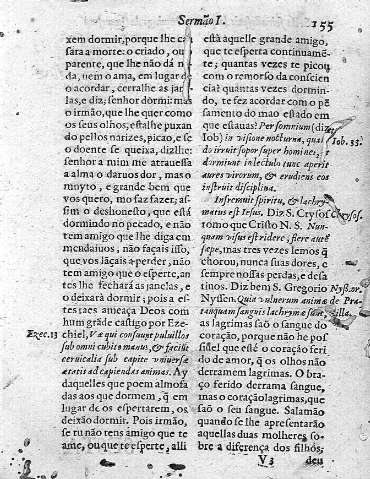 Sermão I.
155
xem dormir, porque lhe cau
sara a morte: o criado, ou
parente, que lhe não dá na
da, nem o ama, em lugar de
o acordar, cerralhe as janel
las, e diz; senhor dormi: mas
o irmão, que lhe quer como
os seus olhos, estalhe puxan
do pellos narizes, picao, e se
o doente se queixa, dizlhe:
senhor a mim me atrauessa
a alma o daruos dor, mas o
muyto, e grande bem que
vos quero, mo faz fazer; as-
sim o deshonesto, que está
dormindo no pecado, e não
tem amigo que lhe diga em-
mendaiuos, não façais isso,
que vos lãçais a perder, não
tem amigo que o esperte, an-
tes lhe fechará as janelas, e
o deixará dormir; pois a es-
tes taes ameaça Deos com
hum grãde castigo por Eze-
Ezec. 13 chiel, Væ qui consuunt puluillos
sub omni cubito manus, & faciũt
ceruicalia sub capite vniuersæ
ætatis ad capiendas animas. Ay
daquelles que poem almofa
das aos que dormem, q̃ em
lugar de os espertarem, os
deixão dormir. Pois irmão,
se tu não tens amigo que te
ame, ou que te esperte, alli
está aquelle grande amigo,
que te esperta continuamẽ-
te; quantas vezes te picou
com o remorso da conscien
cia? quantas vezes dormin-
do, te fez acordar com o pẽ
samento do mao estado em
que estauas? Per somnium (diz
Iob) in visione nocturna, quando
Iob. 33.
irruit sopor super homines,
dormiunt in lectulo tunc aperit
aures virorum, & erudiens eos
instruit disciplina.
Infremuit spiritu, & lachry-
matus est Iesus. Diz S. Crysos
Crysos.
tomo que Christo N. S. Nun-
quam visus est ridere; fiere autẽ
sæpe, mas tres vezes lemos q̃
chorou, nunca suas dores, e
sempre nossas perdas, e desa
tinos. Diz bem S. Gregorio
Nyssen. Quia vulnerum animæ
tanquam sanguis lachrymæ sunt,
as lagrimas saõ o sangue do
coração, porque não he pos
siuel que esté o coração feri
do de amor, q̃ os olhos não
derramem lagrimas. O bra-
ço ferido derrama sangue,
mas o coração lagrimas, que
saõ o seu sangue. Salamão
quando se lhe apresentarão
aquellas duas molheres so-
bre a diferença dos filhos;
V 3
deu